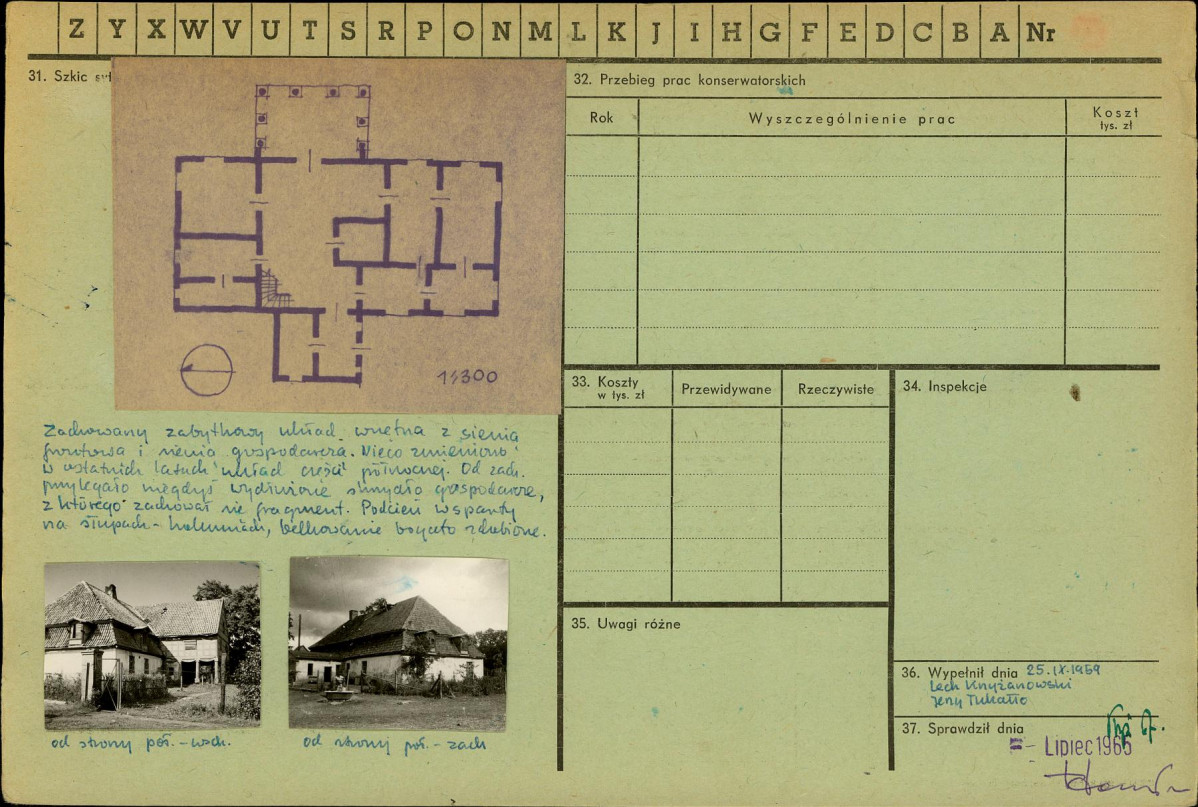 Z Y X W V U T S R P O N M L K J I H G F E D C B A Nr
31. Szkic syt
1:300
Zachowany zabytkowy układ wnętrza z sienią
frontową i sienią gospodarczą. Nieco zmieniono
w ostatnich latach układ części północnej. Od zach.
przylegało niegdyś wydłużone skrzydło gospodarcze,
z którego zachował się fragment. Podcień wsparty
na słupach - kolumnach, belkowanie bogato zdobione.
od strony półn.-wsch.
od strony półn.-zach
32. Przebieg prac konserwatorskich
Rok
Wyszczególnienie prac
Koszt
tys. zł
33. Koszty
w tys. zł
Przewidywane
Rzeczywiste
34. Inspekcje
35. Uwagi różne
36. Wypełnił dnia 25.IX.1959
Lech Krzyżanowski
Jerzy Tukałło
37. Sprawdził dnia
Lipiec 1965